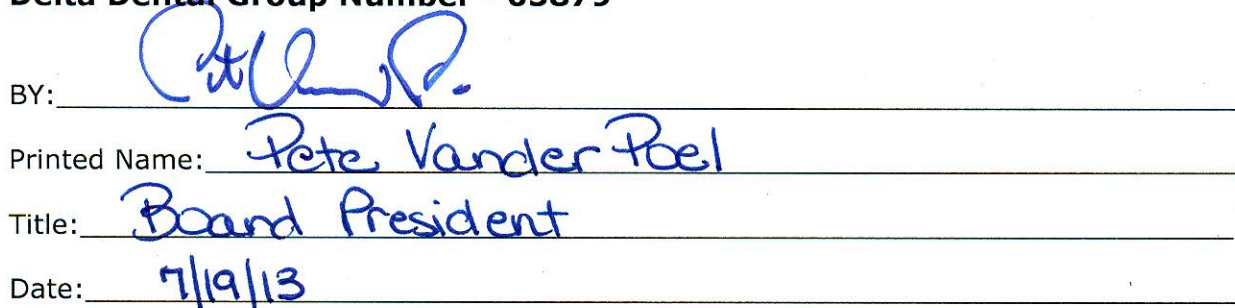 Delta Dental Group Number - 05879
BY:
Printed Name: Pete Vander Poel
Title: Board President
Date: 7/19/13